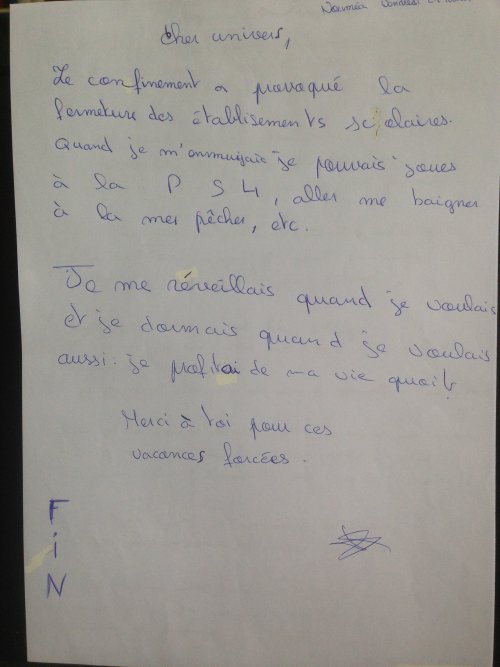 Nouméa Vendredi
Cher univers,
Le confinement a provoqué la
fermeture des établisements scolaires.
Quand je m'ennuyais je pouvais joues
à la PS4, aller me baigner
à la mer pêcher, etc.
Je me réveillais quand je voulais
et je dormais quand je voulais
aussi. je profitai de ma vie quoi!
Merci à toi pour ces
vacances forcées.
F
i
N